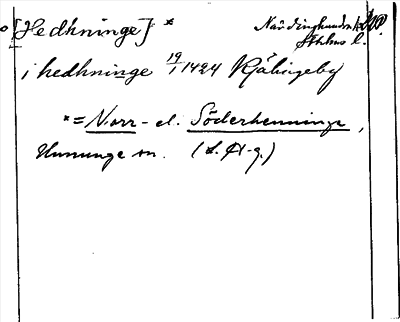 [Hedhninge] *
Närdinghundra hd
Sthlms l.
i hedhninge 19/1 1424
* = Norr- el. Söderhenninge,
Ununge sn. (S. A-g.)